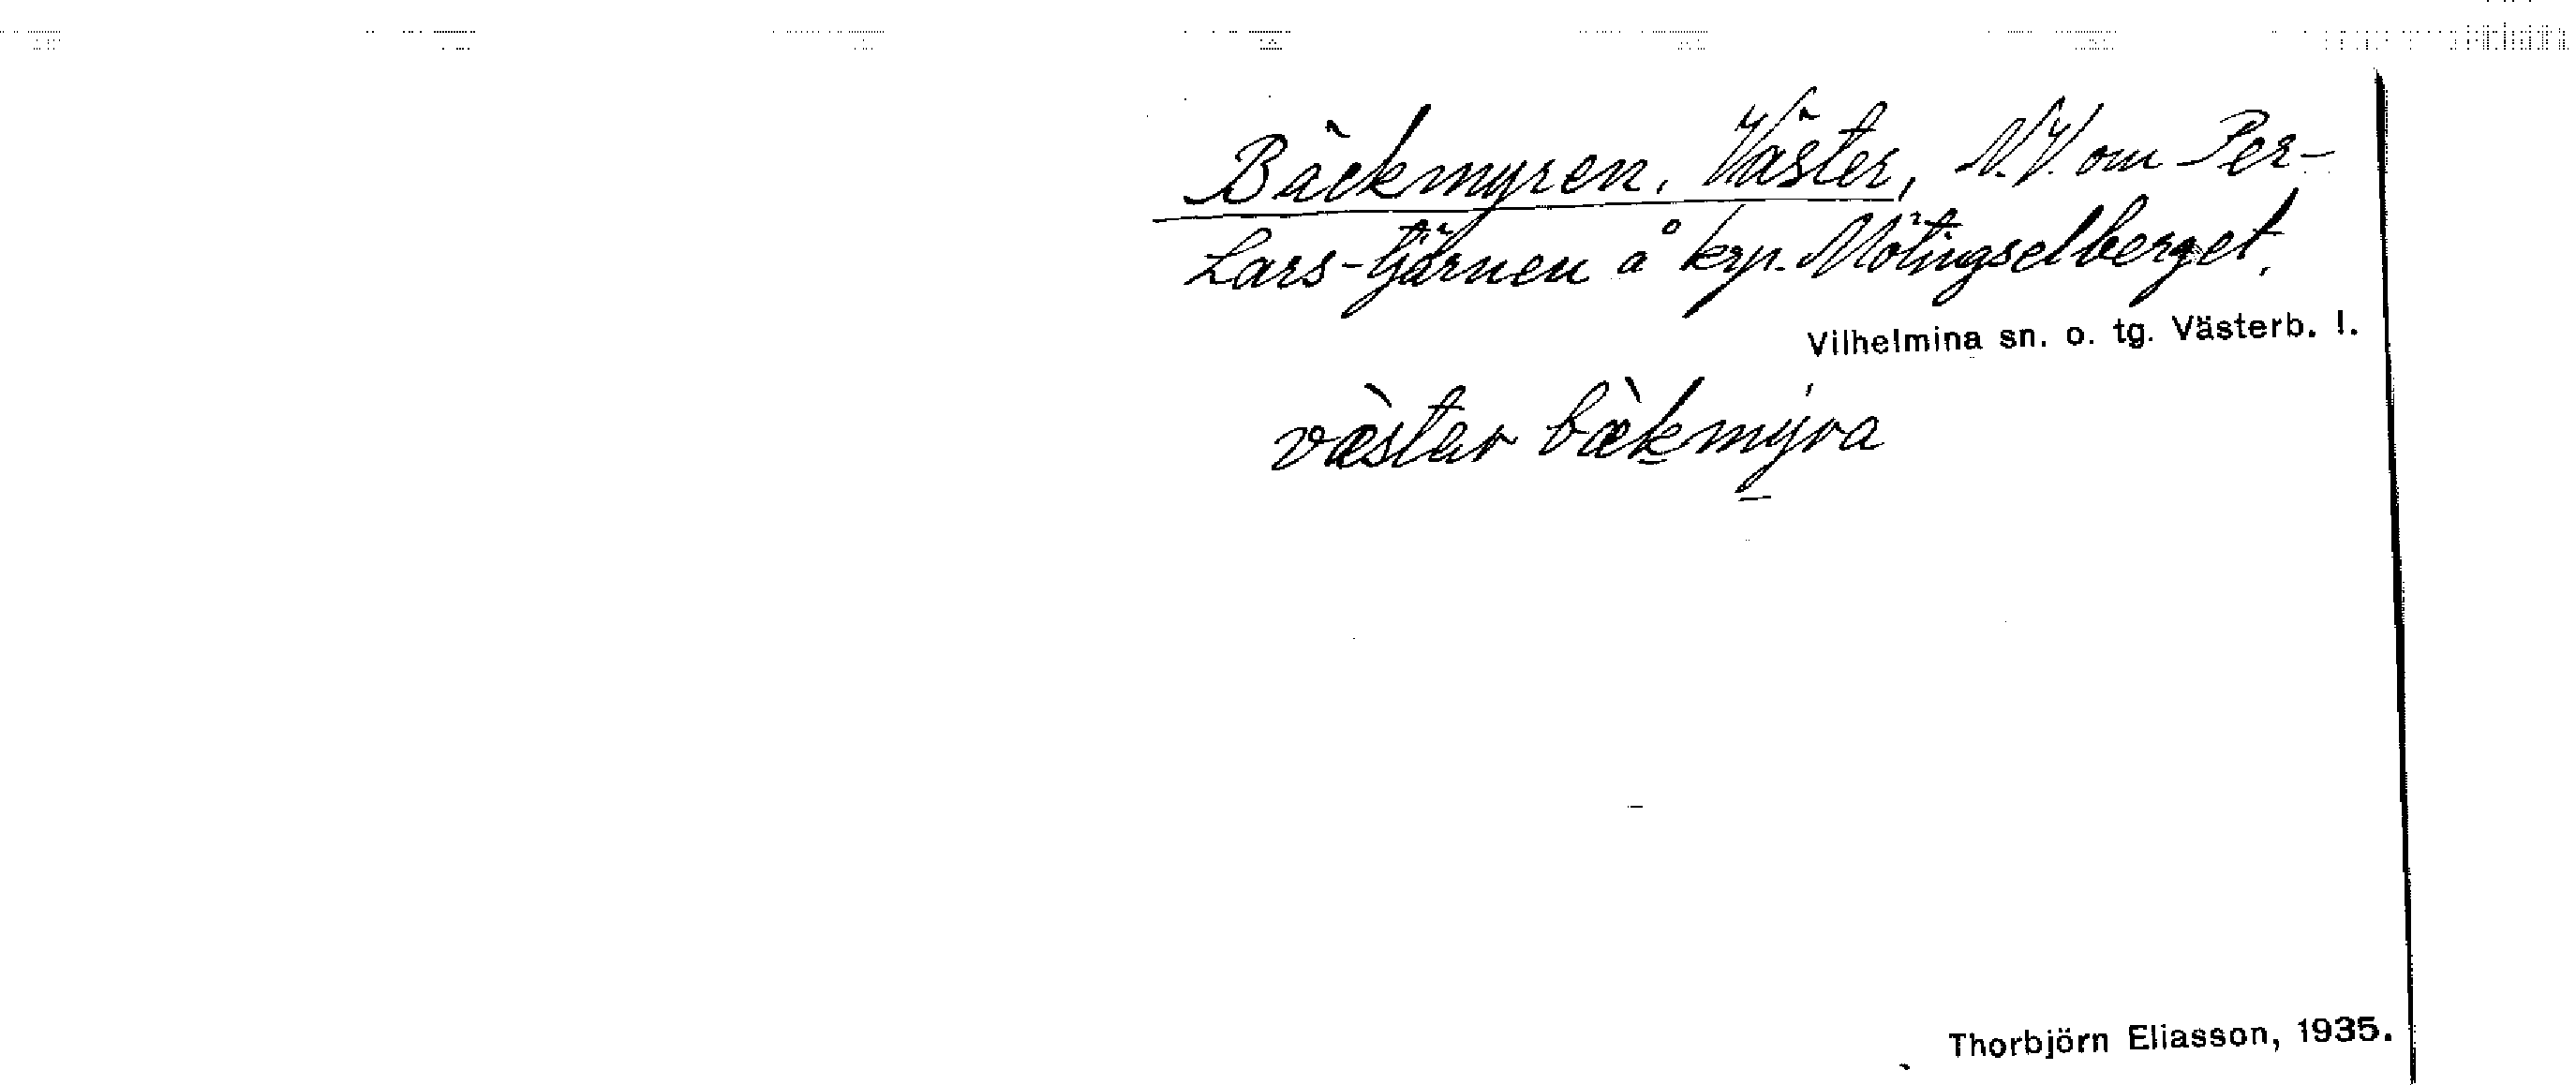 Bäckmyren, Väster, N.V. om Per-
Lars-tjärnen å krp. Mötingselberget.
Vilhelmina sn. o. tg. Västerb. l.
væ̀star bæ̀kmýra
Thorbjörn Eliasson, 1935.